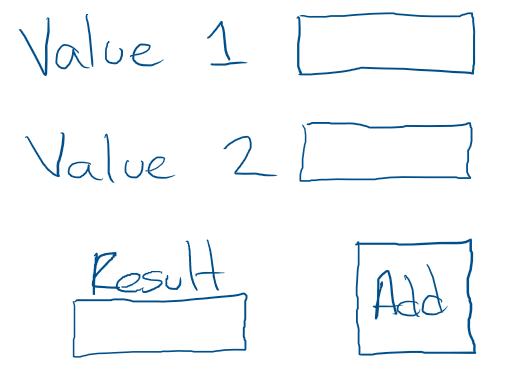 Value 1
Value 2
Result
Add